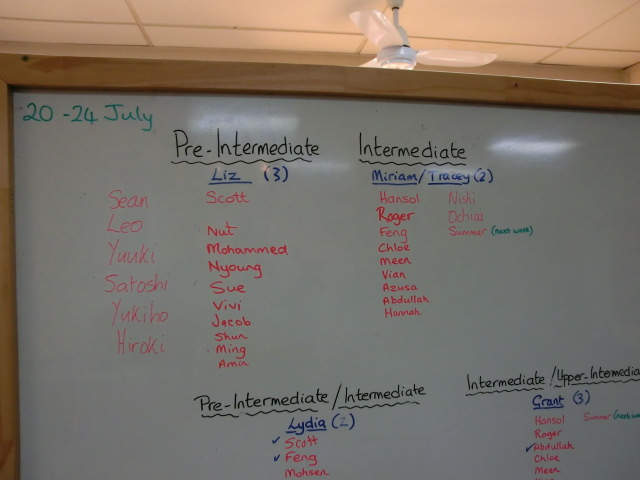 20 - 24 July
Pre-Intermediate
Liz (3)
Sean
Leo
Yuuki
Satoshi
Yukiho
Hiroki
Scott
Nut
Mohammed
Nyoung
Sue
Vivi
Jacob
Shun
Ming
Amin
Intermediate
Miriam/Tracey (2)
Hansol Nishi
Roger Ochiai
Feng Summer (next week)
Chloe
Meen
Vian
Azusa
Abdullah
Hannah
Pre-Intermediate/Intermediate
Lydia (2)
✓ Scott
✓ Feng
Mohsen
Intermediate/Upper-Intermedia
Grant (3)
Hansol Summer (next w
Roger
✓ Abdullah
Chloe
Meen